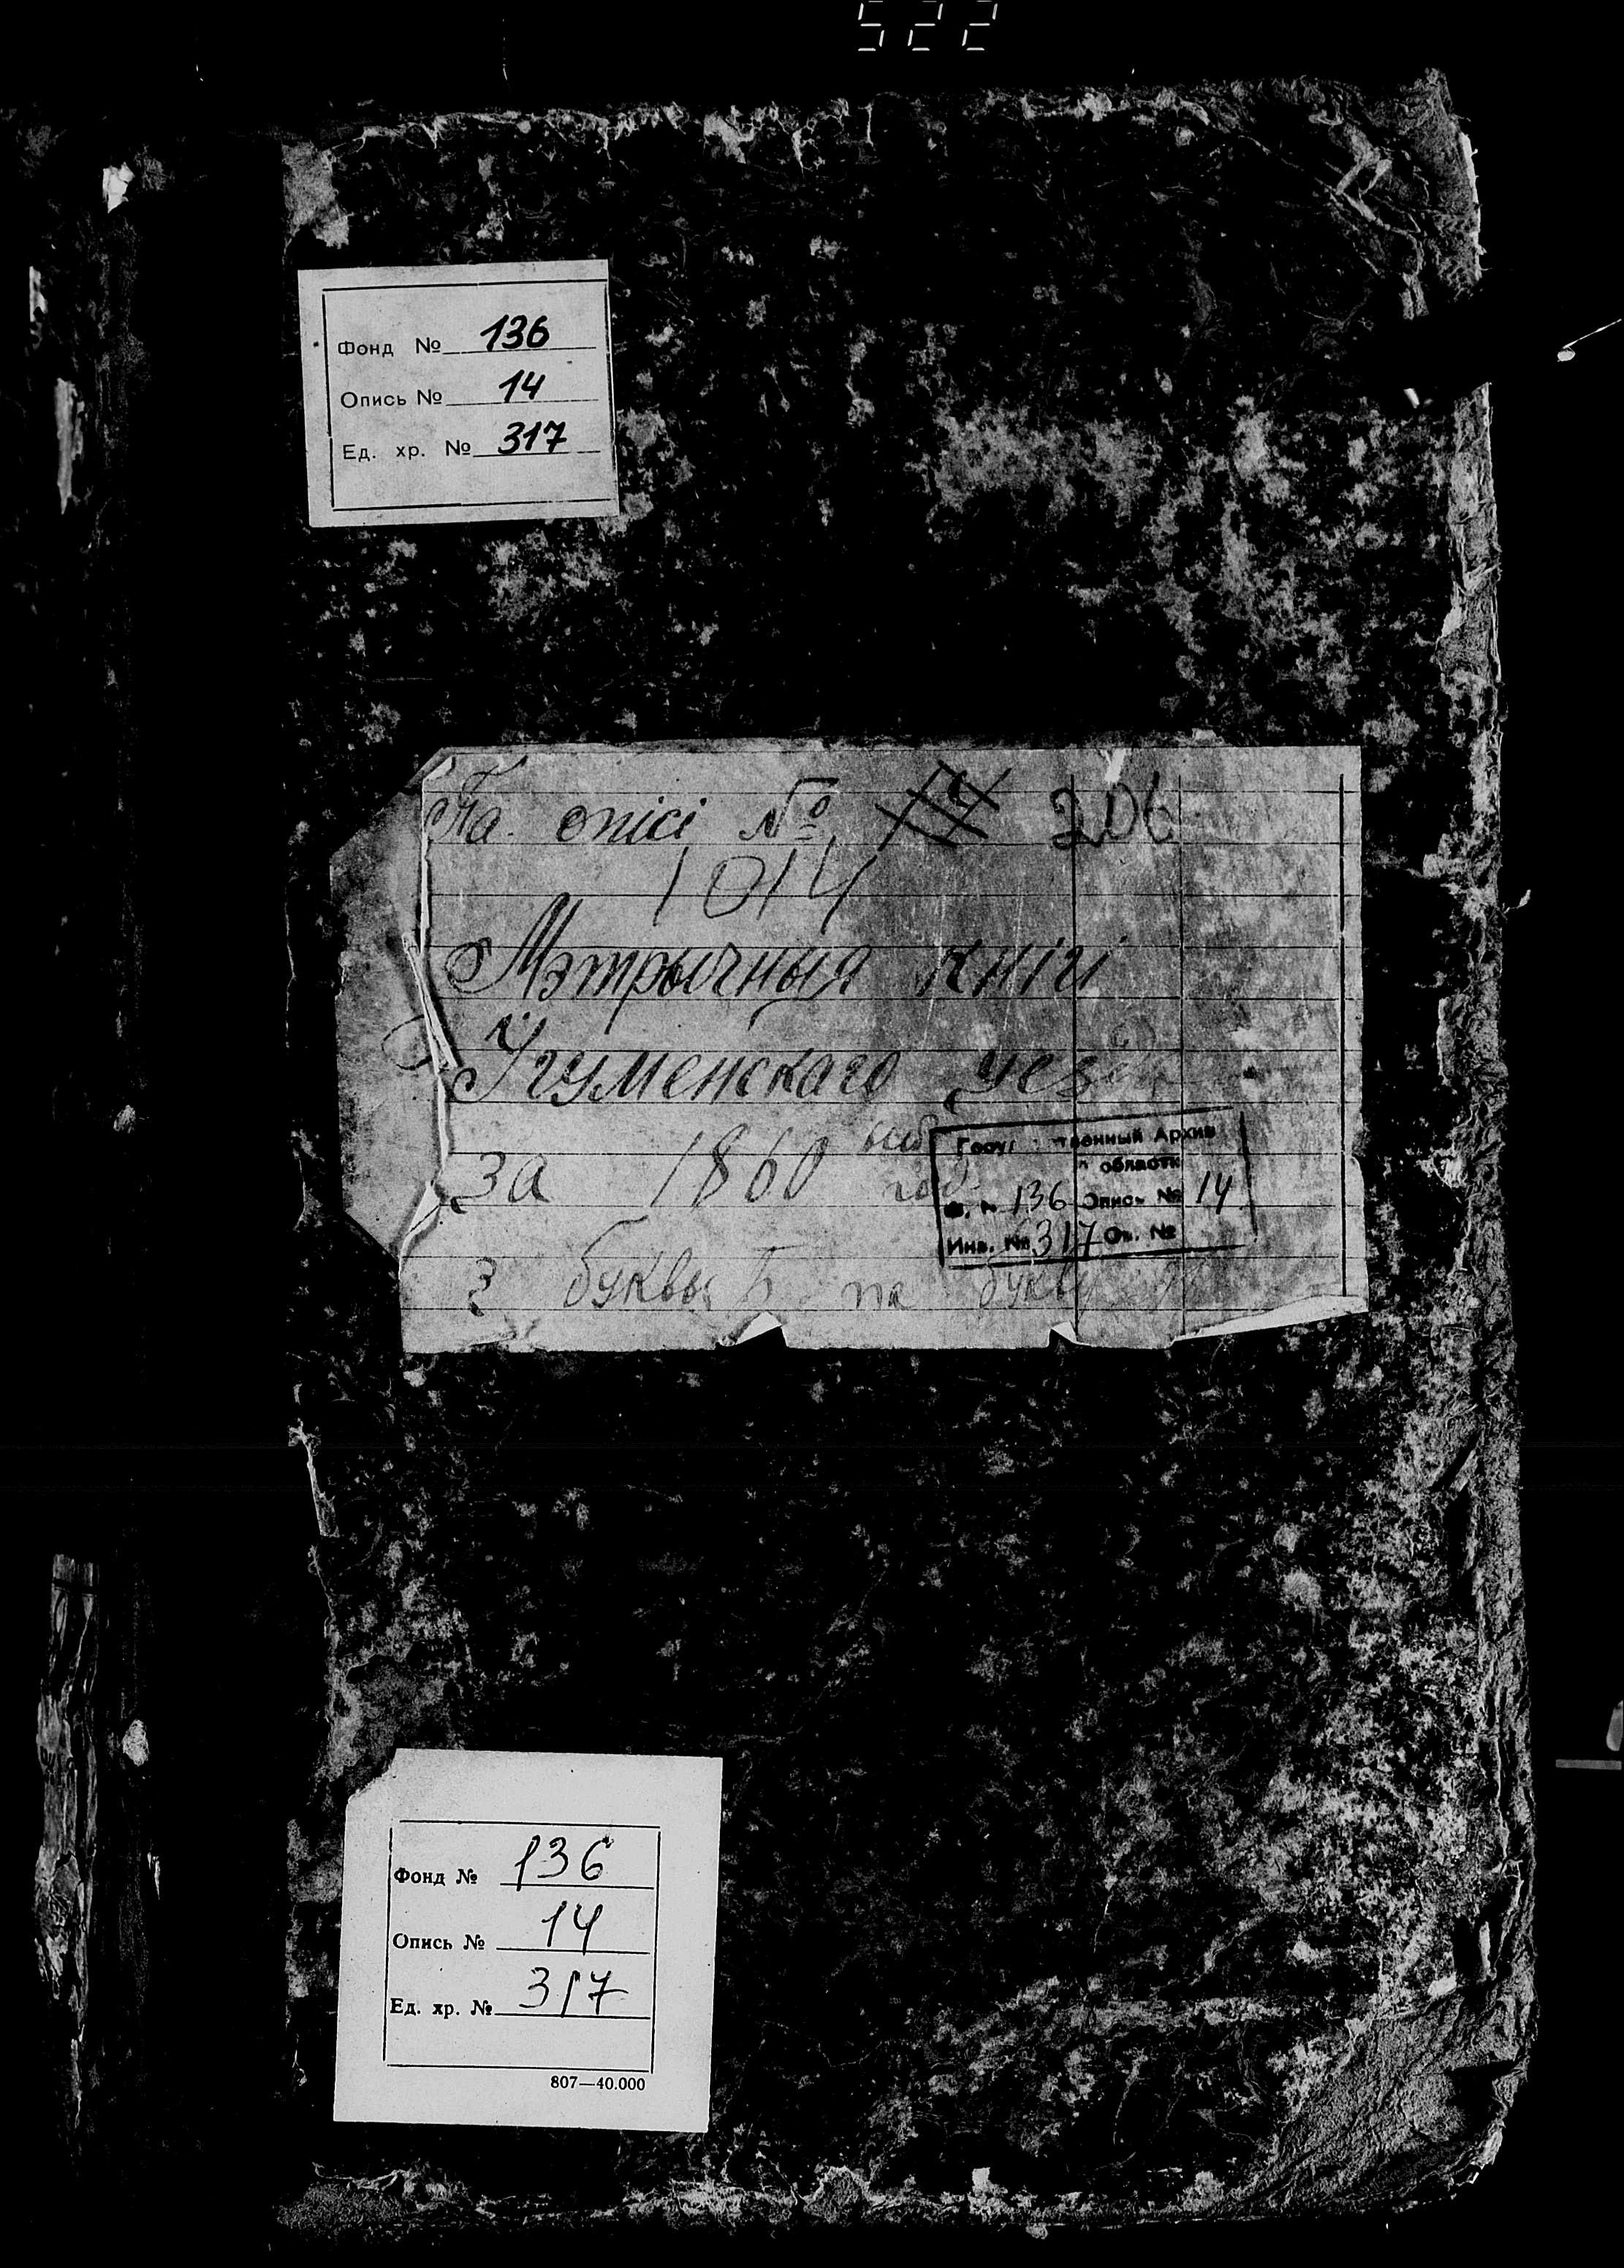 522
Фонд № 136
Опись № 14
Ед. хр. № 317
Па опісі № 206
1014
Мэтрычныя кнігі
Ігуменскаго уез
за 1860 год
Архив
области
136 Опись № 14
Инв. № 317 Оп. №
З буквы Б па букву
Фонд № 136
Опись № 14
Ед. хр. № 317
807—40.000